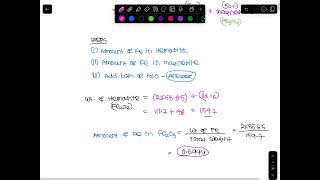 + magne
STEPS
(i) Amount of Fe in Hematite
(ii) Amount of Fe in magnetite
(iii) Add both of two → Answer
Wt. of Hematite = (2x55.85) + (3x16)
(Fe2O3)
= 111.7 + 48 = 159.7
Amount of Fe in Fe2O3 = Wt of Fe / Total weight = 2x55.85 / 159.7
= 0.6994